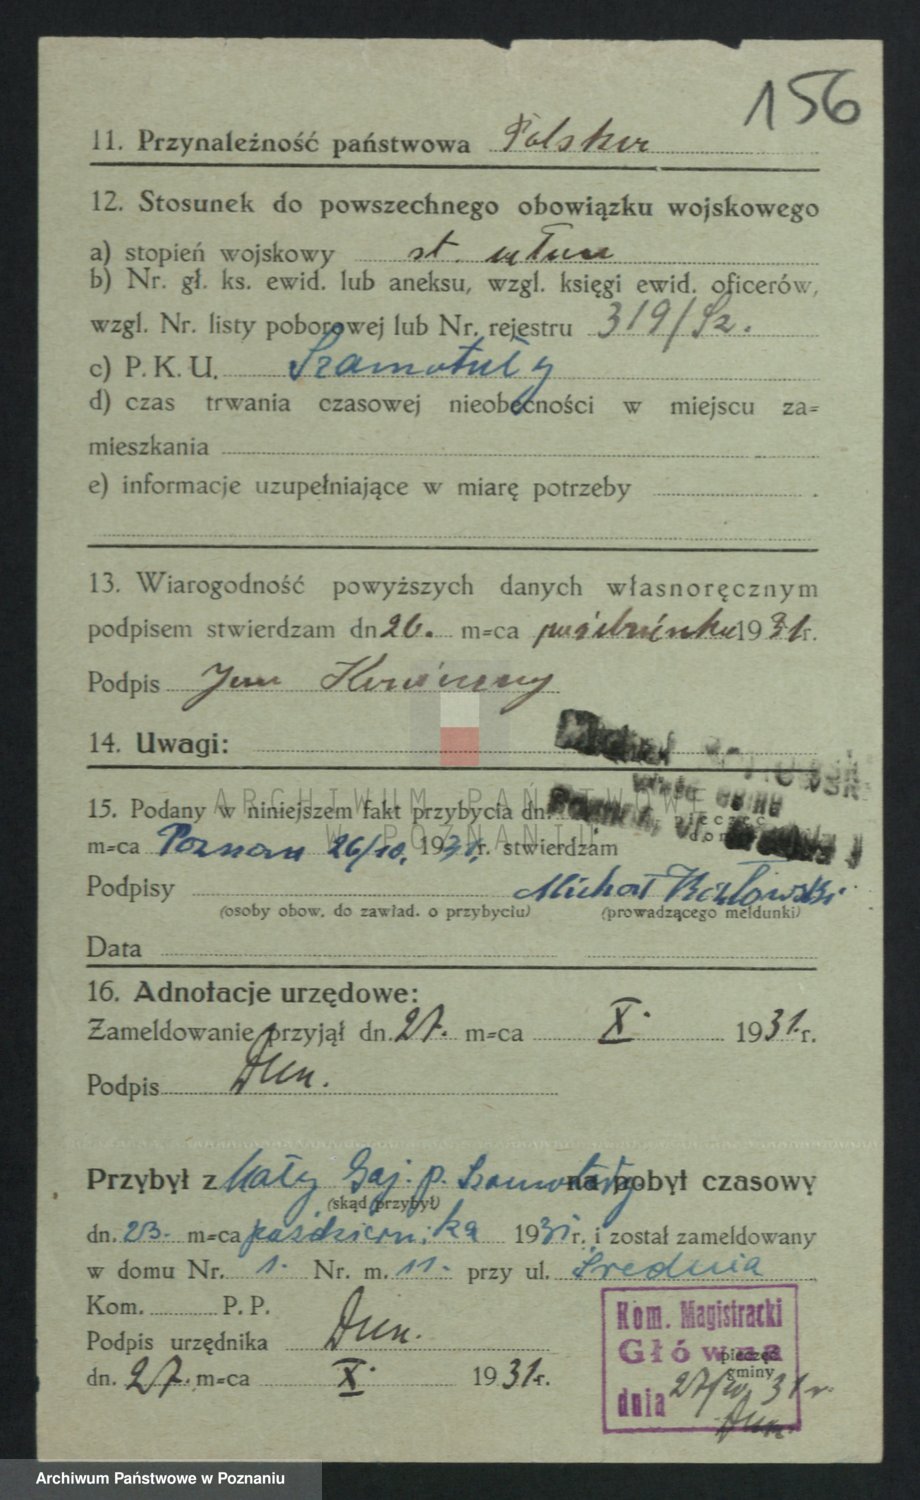 156
11. Przynależność państwowa Polska
12. Stosunek do powszechnego obowiązku wojskowego
a) stopień wojskowy st. ułan
b) Nr. gł. ks. ewid. lub aneksu, wzgl. księgi ewid. oficerów,
wzgl. Nr. listy poborowej lub Nr. rejestru 319/Sz.
c) P. K. U. Szamotuły
d) czas trwania czasowej nieobecności w miejscu za=
mieszkania
e) informacje uzupełniające w miarę potrzeby
13. Wiarogodność powyższych danych własnoręcznym
podpisem stwierdzam dn 26. m=ca października 1931r.
Podpis Jan
14. Uwagi:
ARCHIWUM PAŃSTWOWE
W POZNANIU
15. Podany w niniejszem fakt przybycia dn.
pieczęć
m=ca Poznań 26/10. 1931r. stwierdzam
Podpisy Michał Kozłowski
(osoby obow. do zawiad. o przybyciu) (prowadzącego meldunki)
Data
16. Adnotacje urzędowe:
Zameldowanie przyjął dn. 27. m=ca X. 1931.r.
Podpis
Przybył z Mały Gaj. p. Szamotuły na pobyt czasowy
(skąd przybył)
dn. 23. m=ca października 1931r. i został zameldowany
w domu Nr. 1. Nr. m. 11. przy ul. Średnia
Kom. P. P.
Podpis urzędnika
dn. 27. m=ca X. 1931.r.
Kom. Magistracki
Główna
pieczęć
gminy
dnia 27/10. 31 r.
Archiwum Państwowe w Poznaniu